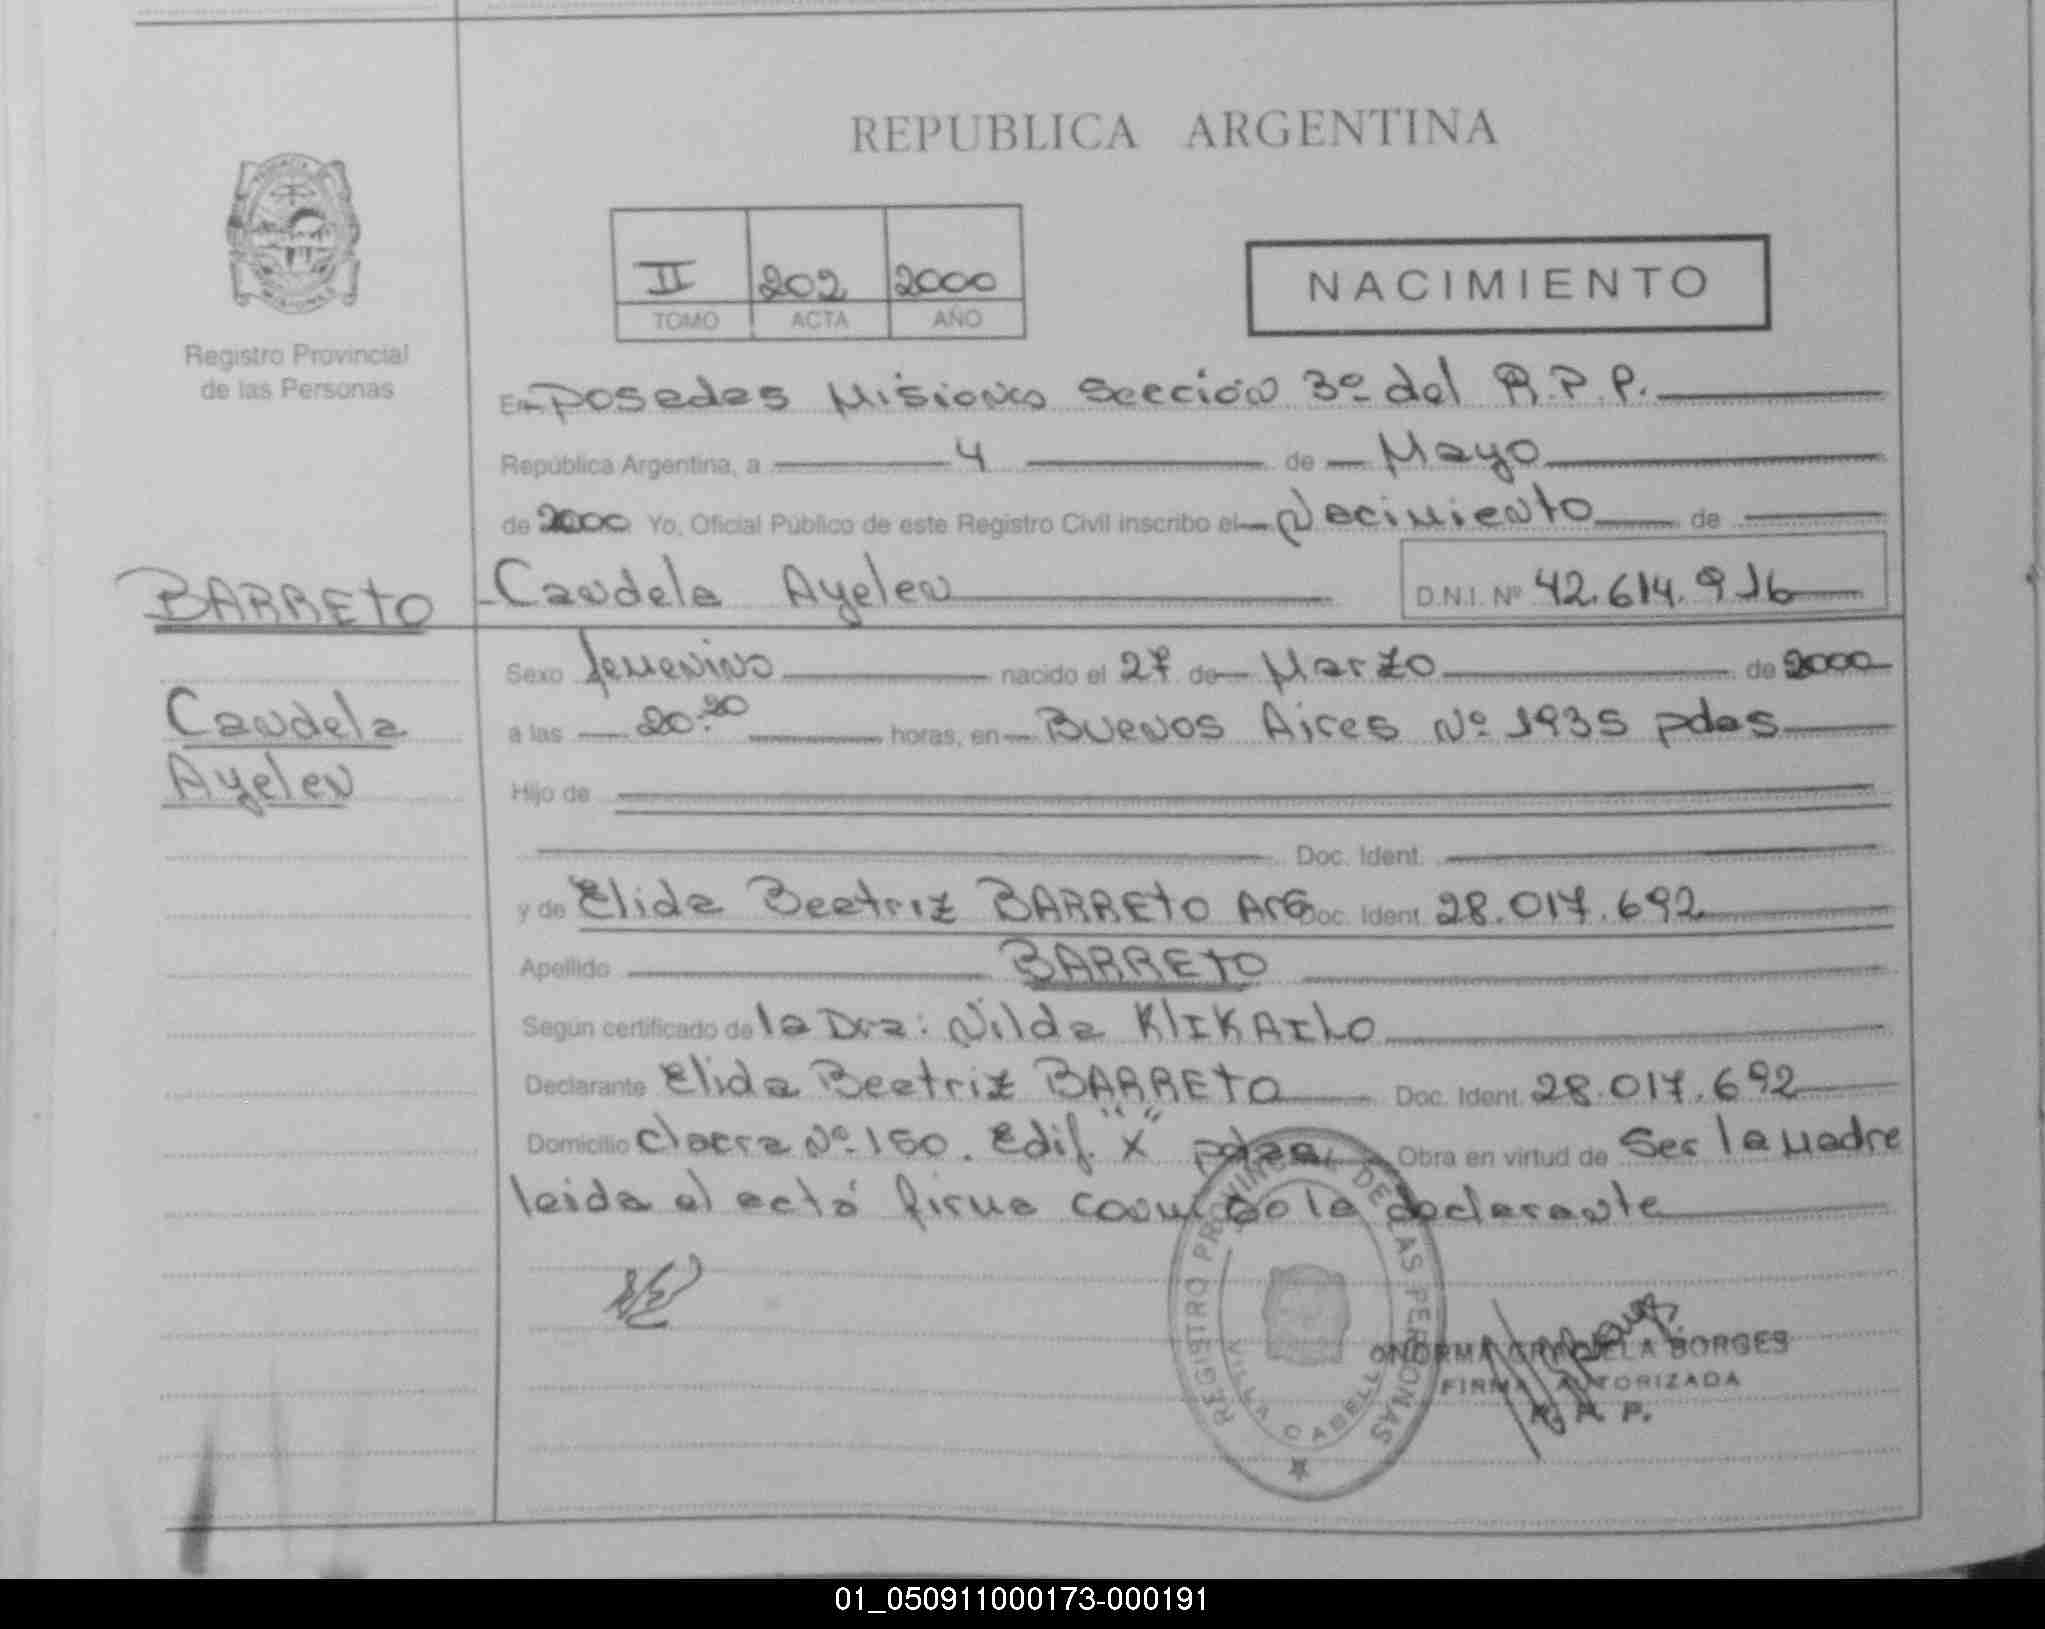 REPUBLICA ARGENTINA
II 202 2000
TOMO ACTA AÑO
NACIMIENTO
Registro Provincial
de las Personas
En Posadas Misiones Sección 3º del R.P.P.
República Argentina, a 4 de Mayo
de 2000 Yo, Oficial Público de este Registro Civil inscribo el Nacimiento de
BARRETO
Candela Ayelen D.N.I. Nº 42.614.916
Sexo femenino nacido el 27 de Marzo de 2000
Candela
a las 20:20 horas, en Buenos Aires Nº 1935 pdas
Ayelen
Hijo de
Doc. Ident.
y de Elida Beatriz BARRETO Arg Doc. Ident. 28.017.692
Apellido BARRETO
Según certificado de la Dra: Nilda KlIKAILO
Declarante Elida Beatriz BARRETO Doc. Ident. 28.017.692
Domicilio chacra Nº 150. Edif. "X" pdas. Obra en virtud de Ser la Madre
leida el acta firma conmigo la declarante
REGISTRO PROVINCIAL DE LAS PERSONAS
VILLA CABELLO
NORMA GRACIELA BORGES
FIRMA AUTORIZADA
R. P. P.
01_050911000173-000191